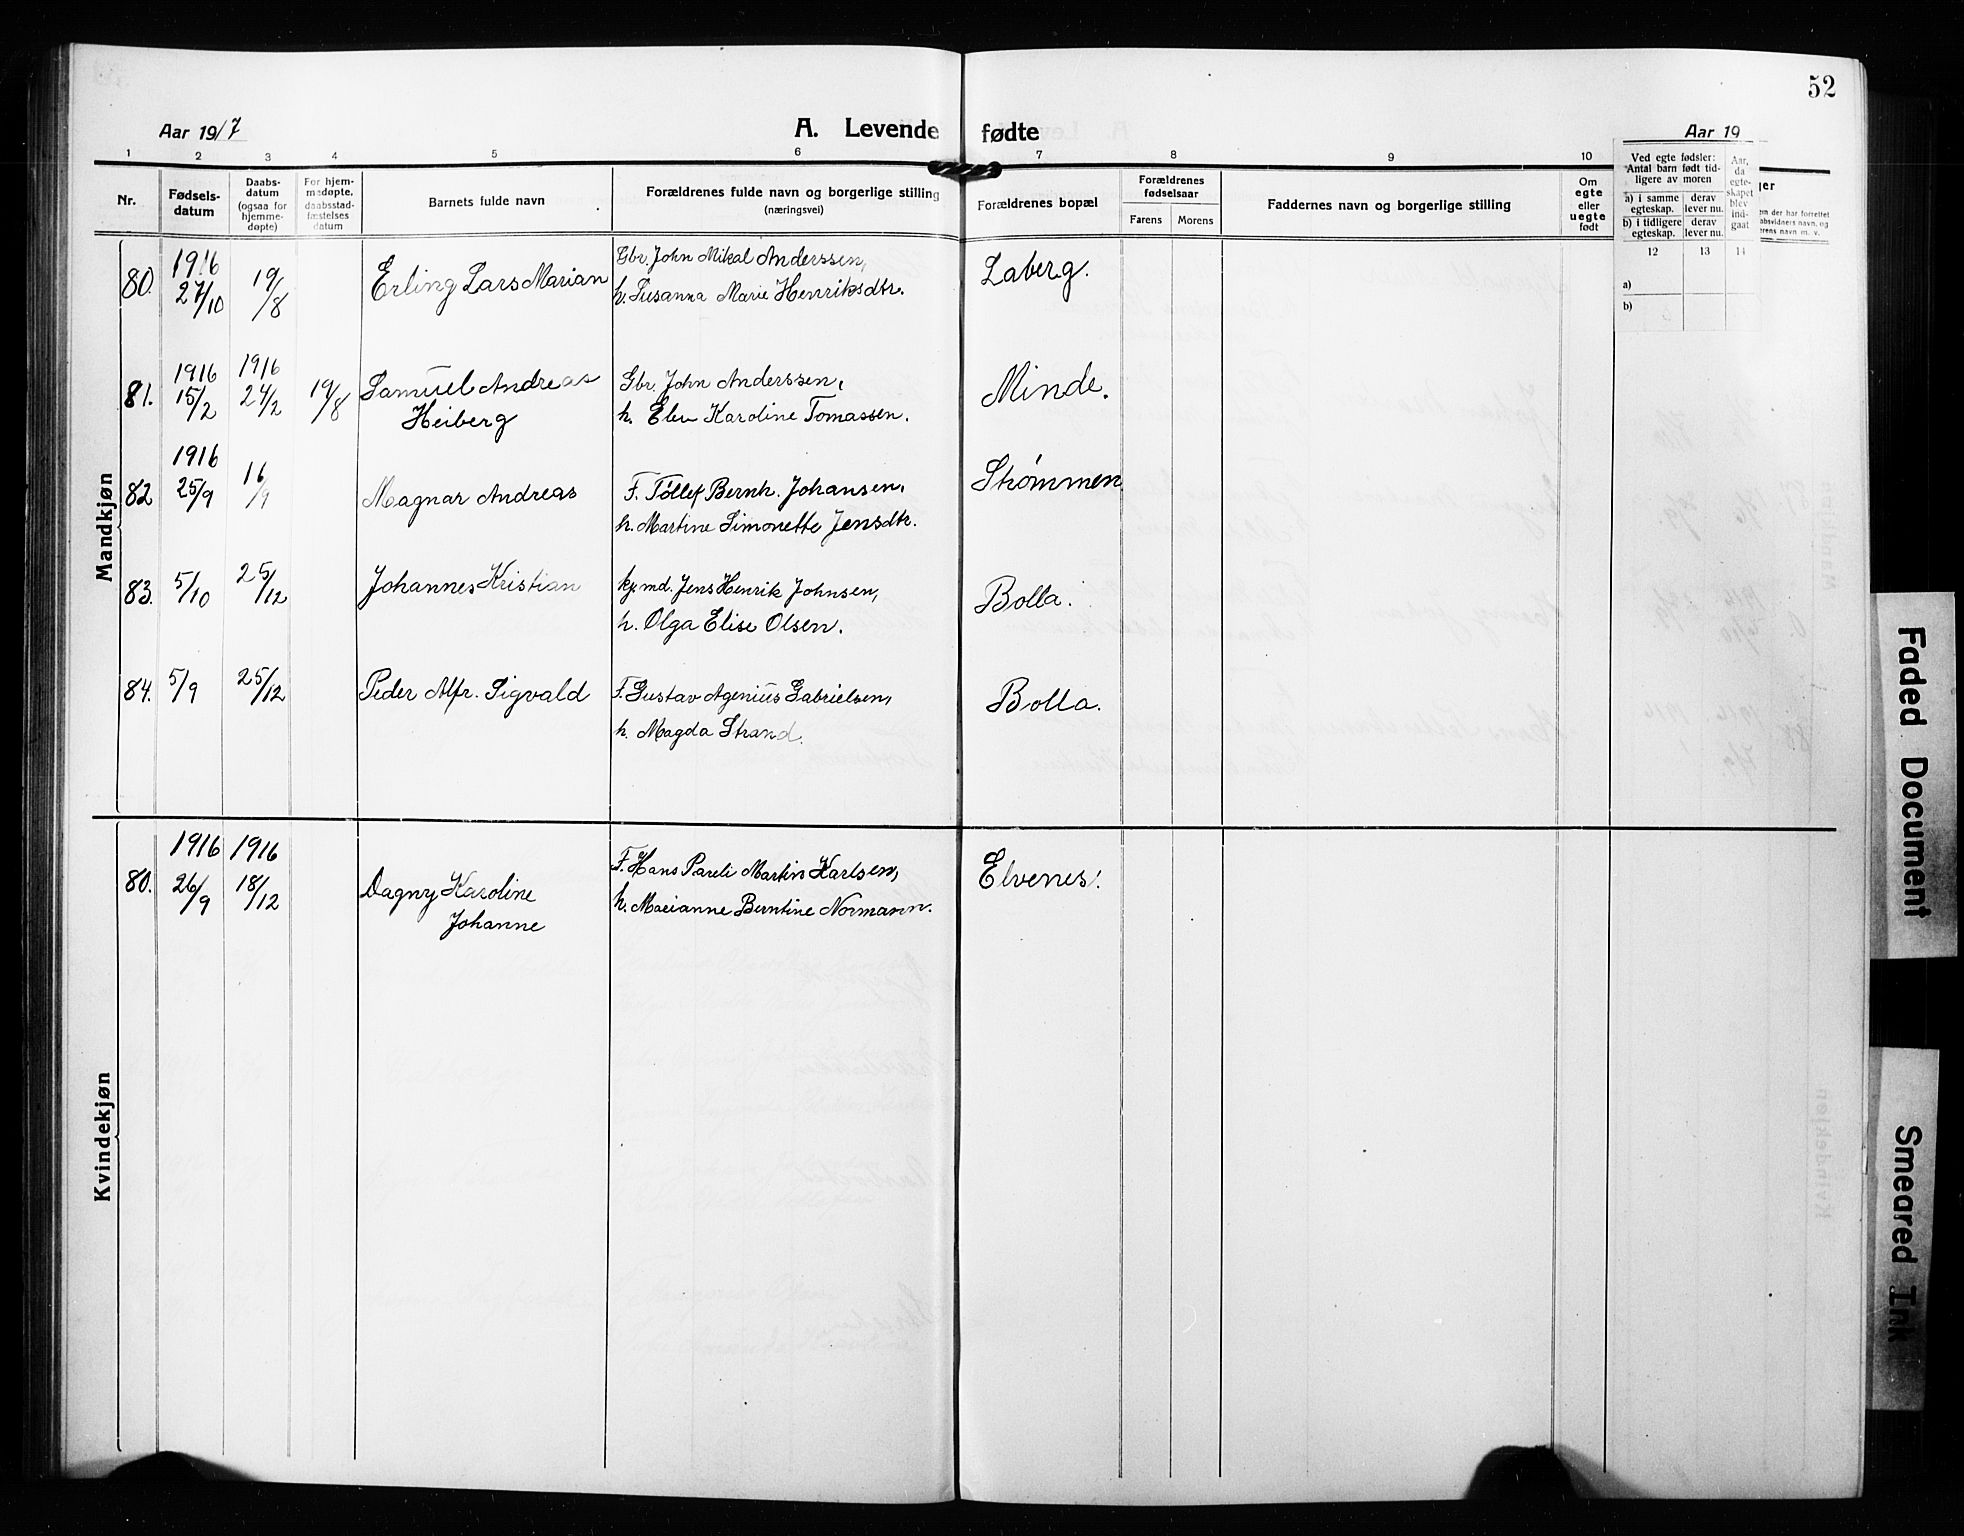 52
Aar 1917
A. Levende fødte
Aar 19
1 2 3 4 5 6 7 8 9 10
Nr.
Fødsels-
datum
Daabs-
datum
(ogsaa for
hjemme-
døpte)
For hjem-
medøpte,
daabsstad-
fæstelses
datum
Barnets fulde navn
Forældrenes fulde navn og borgerlige stilling
(næringsvei)
Forældrenes bopæl
Forældrenes
fødselsaar
Farens Morens
Faddernes navn og borgerlige stilling
Om
egte
eller
uegte
født
Ved egte fødsler:
Antal barn født tid-
ligere av moren
a) i samme
egteskap.
derav
lever nu.
b) i tidligere
egteskap.
derav
lever nu.
Aar,
da
egte-
skapet
blev
ind-
gaat
12 13 14
a)
b)
ger
em der har forrettet
aabsvidners navn, og
erens navn m. v.
Mandkjøn
80. 1916 27/10 19/8 Erling Lars Marian
Gbr. John Mikal Anderssen,
h. Susanna Marie Henriksdtr.
Laberg.
81. 1916 15/2 1916 24/2 19/8 Samuel Andreas
Heiberg
Gbr. John Anderssen,
h. Elev Karoline Tomassen.
Minde.
82 1916 25/9 16/9 Magnar Andreas
F. Tøllef Bernh. Johansen,
h. Martine Simonette Jensdtr.
Strømmen
83. 5/10 25/12 Johannes Kristian
kj. md. Jens Henrik Johnsen,
h. Olga Elise Olsen.
Bolla.
84. 5/9 25/12 Peder Alfr. Sigvald
F. Gustav Agenius Gabrielsen,
h. Magda Strand.
Bolla.
Kvindekjøn
80. 1916 26/9 1916 18/12 Dagny Karoline
Johanne
F. Hans Pareli Martin Karlsen,
h. Marianne Berntine Normann.
Elvenes.
Faded Document
Smeared Ink